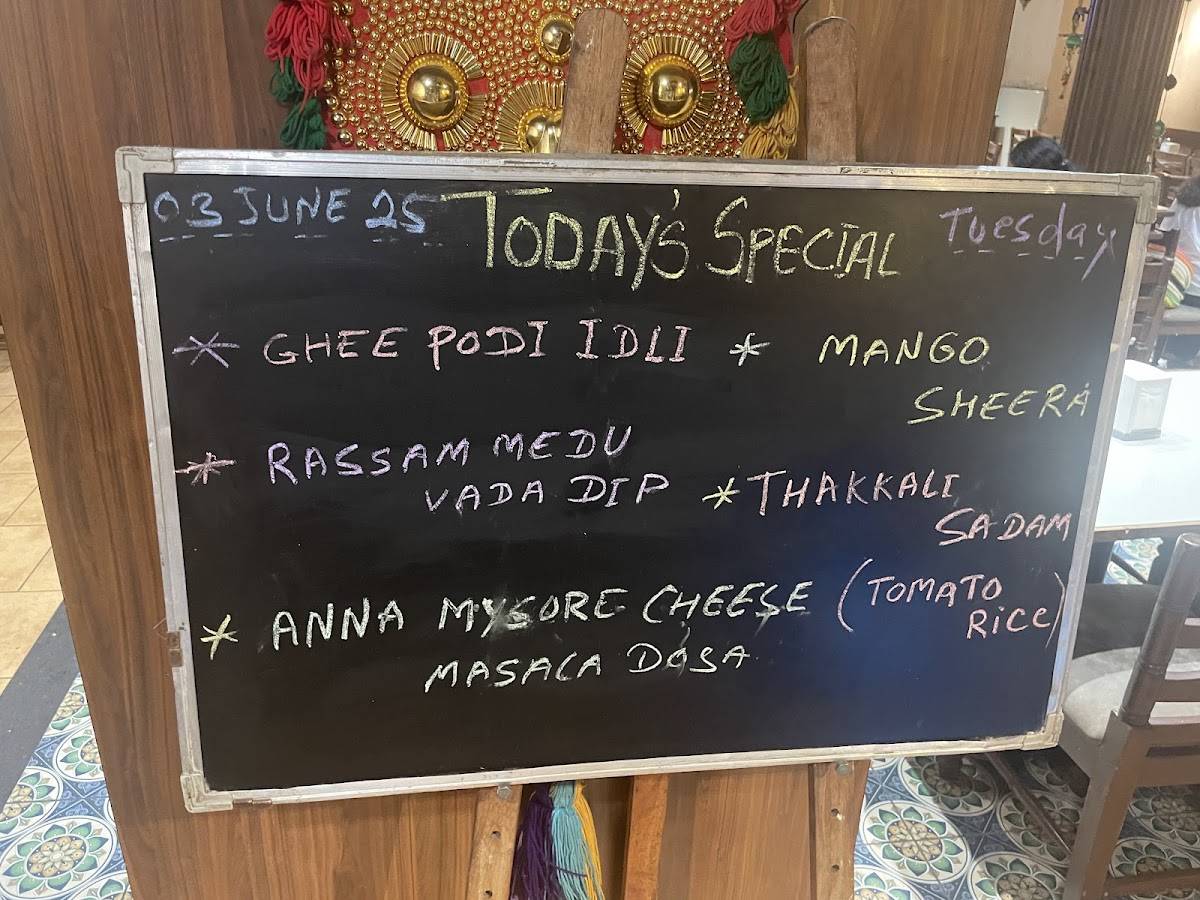 03 JUNE 25 TODAY'S SPECIAL Tuesday
* GHEE PODI IDLI * MANGO
SHEERA
* RASSAM MEDU
VADA DIP * THAKKALI
SADAM
* ANNA MYSORE CHEESE (TOMATO
RICE)
MASALA DOSA